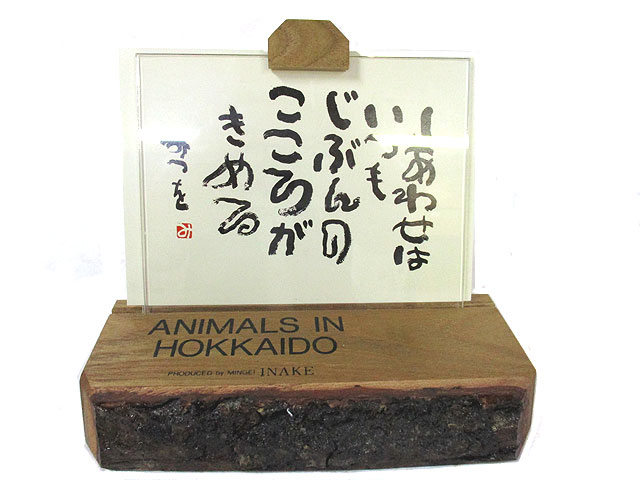 しあわせは
いつも
じぶんの
こころが
きめる
みつを
み
ANIMALS IN
HOKKAIDO
PRODUCED by MINGEI INAKE